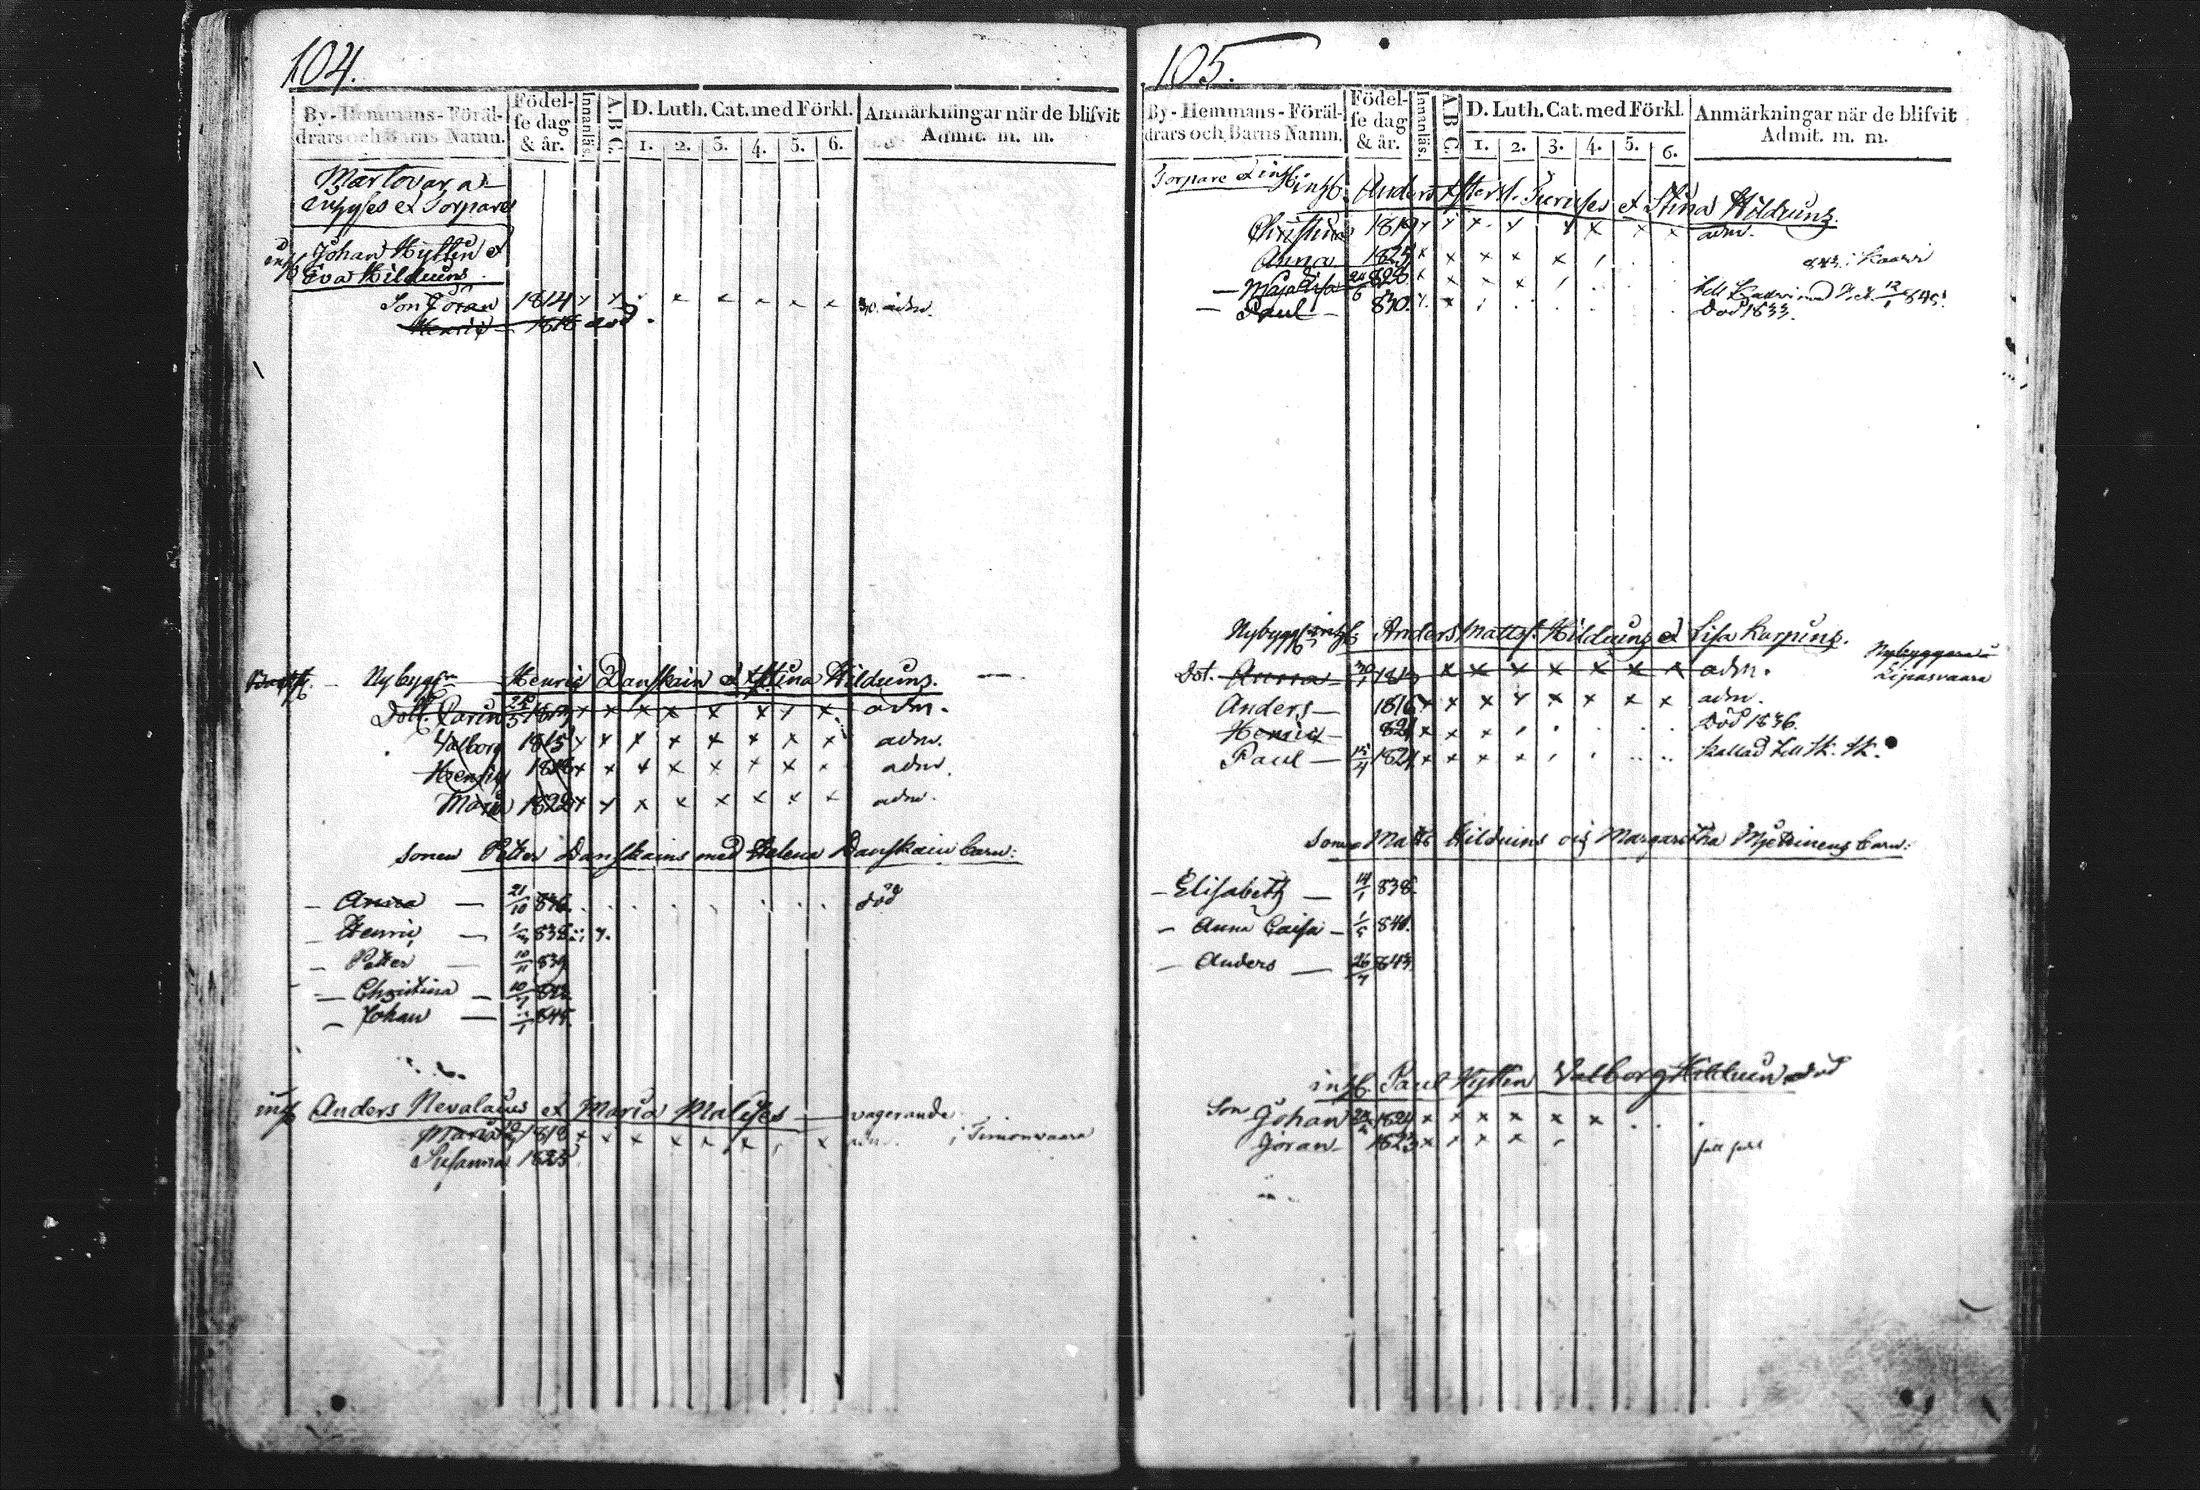 104.
By-Hemmans-Föräl-drars och Barns Namn. Födel-se dag & år. Innanläs. A.B.C. D. Luth. Cat. med Förkl. 1. 2. 3. 4. 5. 6. Anmärkningar när de blifvit Admit. m. m.
Martovara
Inhyses et Torpare
Johan Hyttin et
Eva Hilduns
Son Jöran 1814 adm.
Henric 1818 död.
Nybygg. Henric Danskain et Stina Hilduns.
Dott. Carin 1813 adm.
Valborg 1815 adm.
Henric 1818 adm.
Maria 1822 adm.
Sonen Petter Danskains med Helena Danskain barn:
Anna 21/10 836. död
Henric 838
Petter 10/11 839
Christina 10/7 842
Johan 845.
inh. Anders Nevalains et Maria Malises vagerande
Maria 1818 adm. i Timonvaara
Susanna 1825
105.
By-Hemmans-Föräl-drars och Barns Namn. Födel-se dag & år. Innanläs. A.B.C. D. Luth. Cat. med Förkl. 1. 2. 3. 4. 5. 6. Anmärkningar när de blifvit Admit. m. m.
Torpare et inh.
inh. Anders Turuises et Stina Hilduns.
Christina 1819 adm.
Anna 1825 843 i Kaavi
Maja Lisa 24/6 828 till Kaavi med 12/1 845.
Paul 830. Död 1833.
Nybygg. inh. Anders Mattss. Hilduns et Lisa Karpins.
Dot. Anna 1813 adm. Nybyggare i Lipasvaara
Anders 1816 adm.
Henric 821 Död 1836.
Paul 15/4 1824 kallad till
Sonen Matts Hilduins och Margaretha Miettinens barn:
Elisabeth 14/1 838.
Anna Caisa 1/5 840.
Anders 26/7 843
inh. Paul Hytten Valborg Hilduin död
Son Johan 1821
Jöran 1823